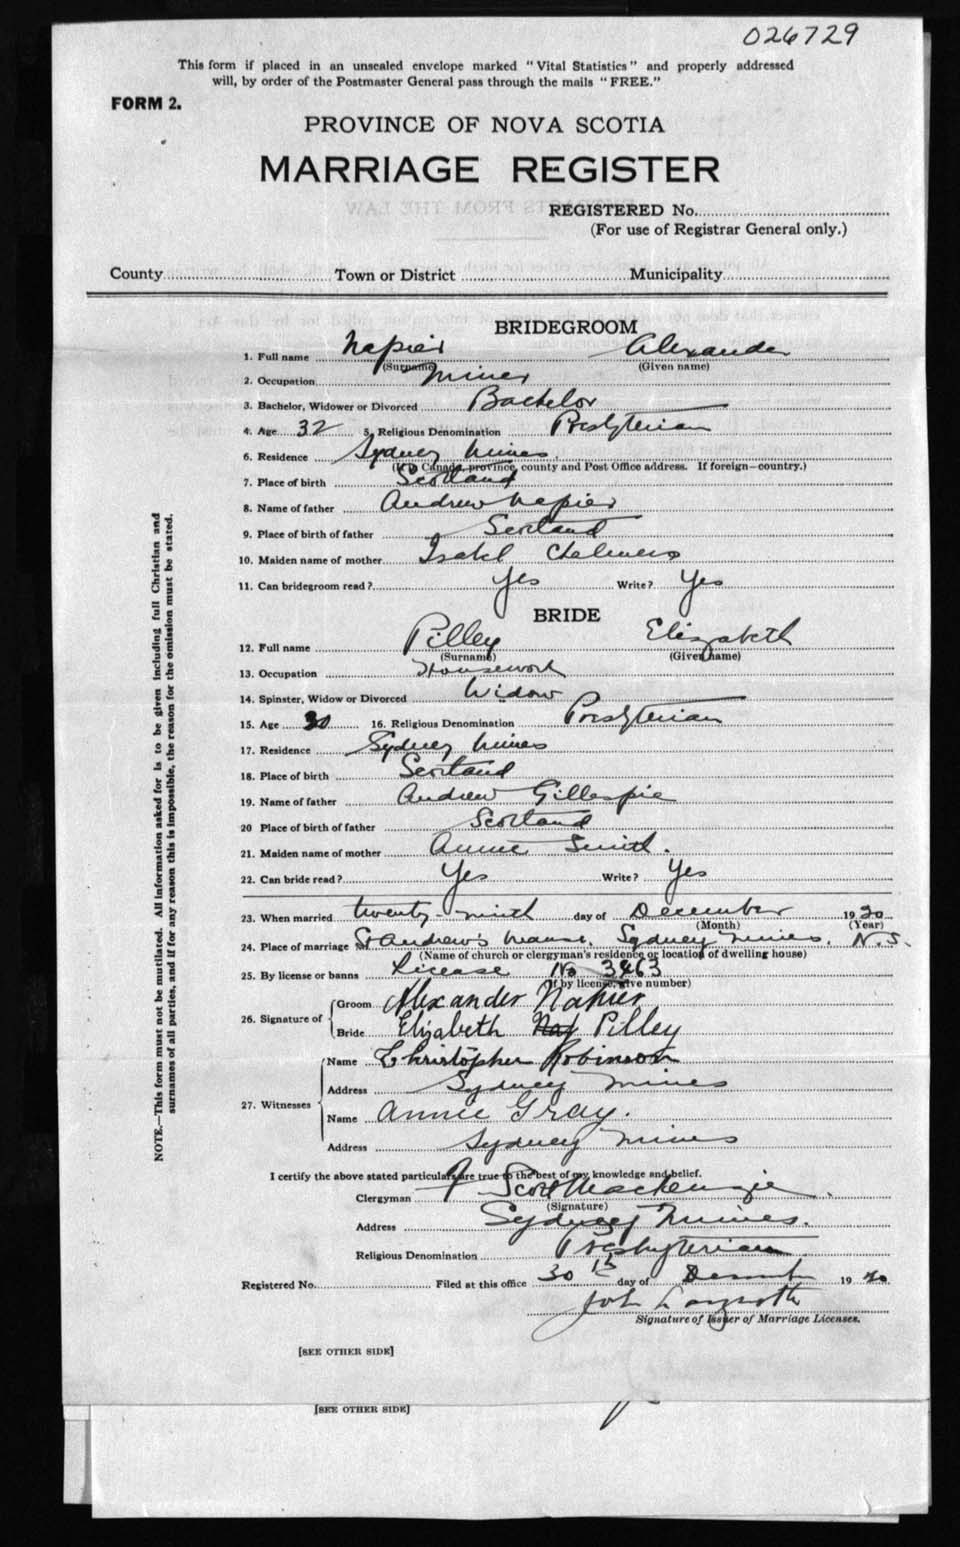 026729
This form if placed in an unsealed envelope marked "Vital Statistics" and properly addressed
will, by order of the Postmaster General pass through the mails "FREE."
FORM 2.
PROVINCE OF NOVA SCOTIA
MARRIAGE REGISTER
REGISTERED No.
(For use of Registrar General only.)
County Town or District Municipality
BRIDEGROOM
1. Full name Napier Alexander
(Surname) (Given name)
2. Occupation Miner
3. Bachelor, Widower or Divorced Bachelor
4. Age 32 5. Religious Denomination Presbyterian
6. Residence Sydney Mines.
(If in Canada, province, county and Post Office address. If foreign—country.)
7. Place of birth Scotland
8. Name of father Andrew Napier
9. Place of birth of father Scotland
10. Maiden name of mother Isabel Chalmers
11. Can bridegroom read? Yes Write? Yes
BRIDE
12. Full name Pilley Elizabeth
(Surname) (Given name)
13. Occupation Housework
14. Spinster, Widow or Divorced Widow
15. Age 30 16. Religious Denomination Presbyterian
17. Residence Sydney Mines
18. Place of birth Scotland
19. Name of father Andrew Gillespie
20 Place of birth of father Scotland
21. Maiden name of mother Annie Smith.
22. Can bride read? Yes Write? Yes
23. When married twenty-ninth day of December 1920
(Month) (Year)
24. Place of marriage St Andrew's Manse, Sydney Mines, N.S.
(Name of church or clergyman's residence or location of dwelling house)
25. By license or banns License No 3463
(If by license, give number)
26. Signature of Groom Alexander Napier
Bride Elizabeth Nay Pilley
27. Witnesses Name Christopher Robinson
Address Sydney Mines
Name Annie Gray.
Address Sydney Mines
I certify the above stated particulars are true to the best of my knowledge and belief.
Clergyman Scott Mackenzie.
(Signature)
Address Sydney Mines.
Religious Denomination Presbyterian
Registered No. Filed at this office 30th day of December 1920
John
Signature of Issuer of Marriage Licenses.
[SEE OTHER SIDE]
[SEE OTHER SIDE]
NOTE.—This form must not be mutilated. All information asked for is to be given including full Christian and
surnames of all parties, and if for any reason this is impossible, the reason for the omission must be stated.